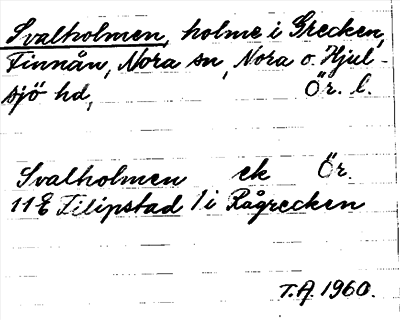 Svalholmen, holme i Grecken,
Finnån, Nora sn, Nora o. Hjul-
sjö hd, Ör. l.
Svalholmen ek Ör.
11E Filipstad 1 i Rågrecken
T.A. 1960.